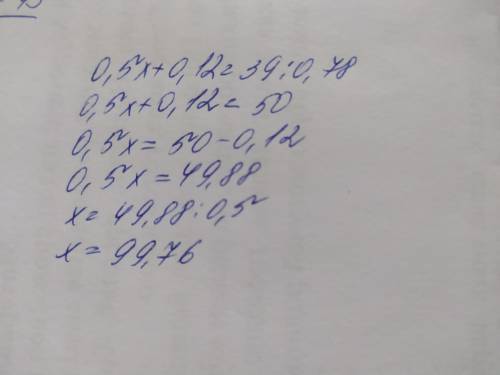 0,5x+0,12=39:0,78
0,5x+0,12=50
0,5x=50-0,12
0,5x=49,88
x=49,88:0,5
x=99,76